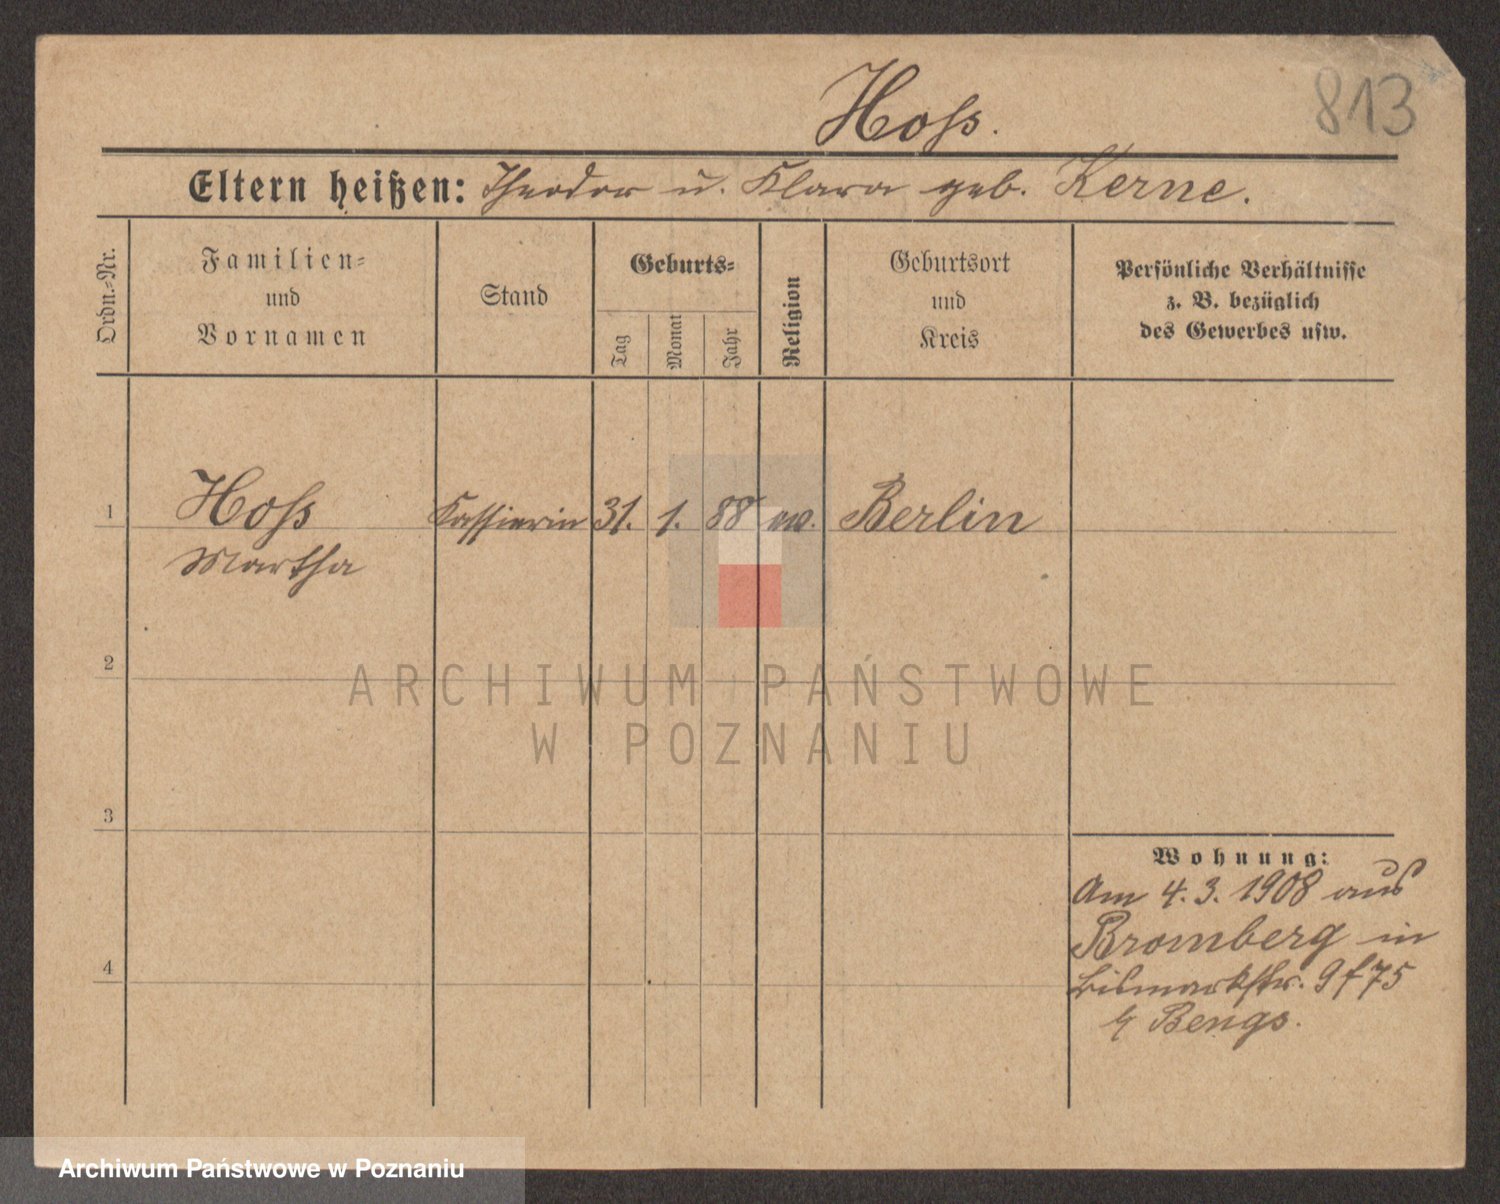 813
Hoss.
Eltern heißen: Theodor u. Klara geb. Kerne.
Ordn.-Nr.
Familien-
und
Vornamen
Stand
Geburts-
Tag
Monat
Jahr
Religion
Geburtsort
und
Kreis
Persönliche Verhältnisse
z. B. bezüglich
des Gewerbes usw.
1 Hoss Kassierin 31. 1. 88 ev. Berlin
Martha
2
ARCHIWUM PAŃSTWOWE
W POZNANIU
3
Wohnung:
Am 4.3.1908 aus
Bromberg in
Bismarkstr. 9
4
Bengs.
Archiwum Państwowe w Poznaniu